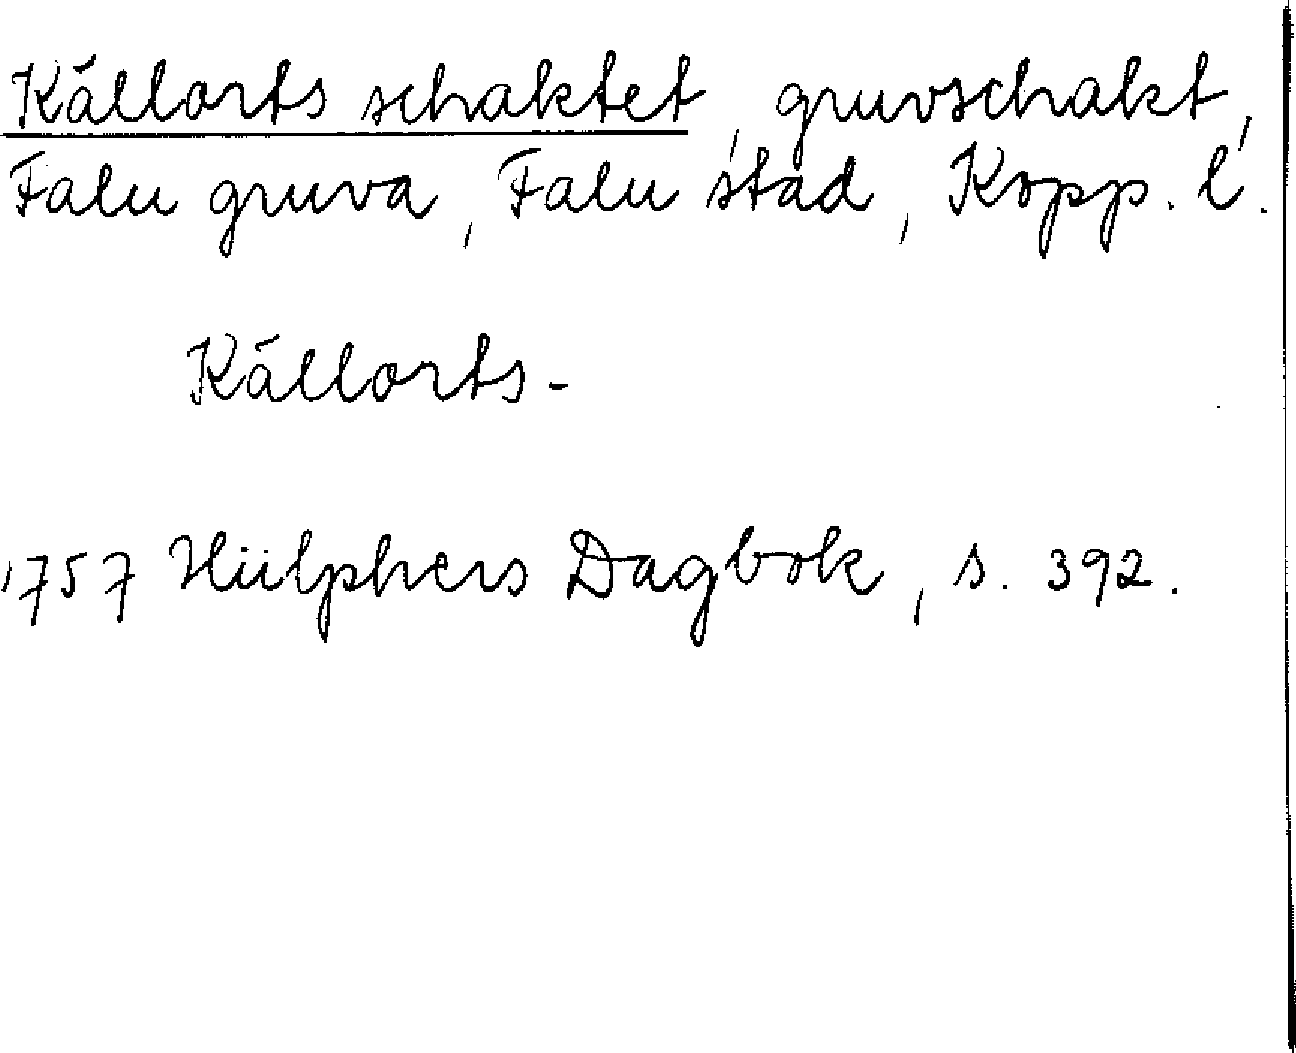 Källorts schaktet, gruvschakt,
Falu gruva, Falu stad, Kopp. l.
Källorts-
1757 Hülphers Dagbok, s. 392.